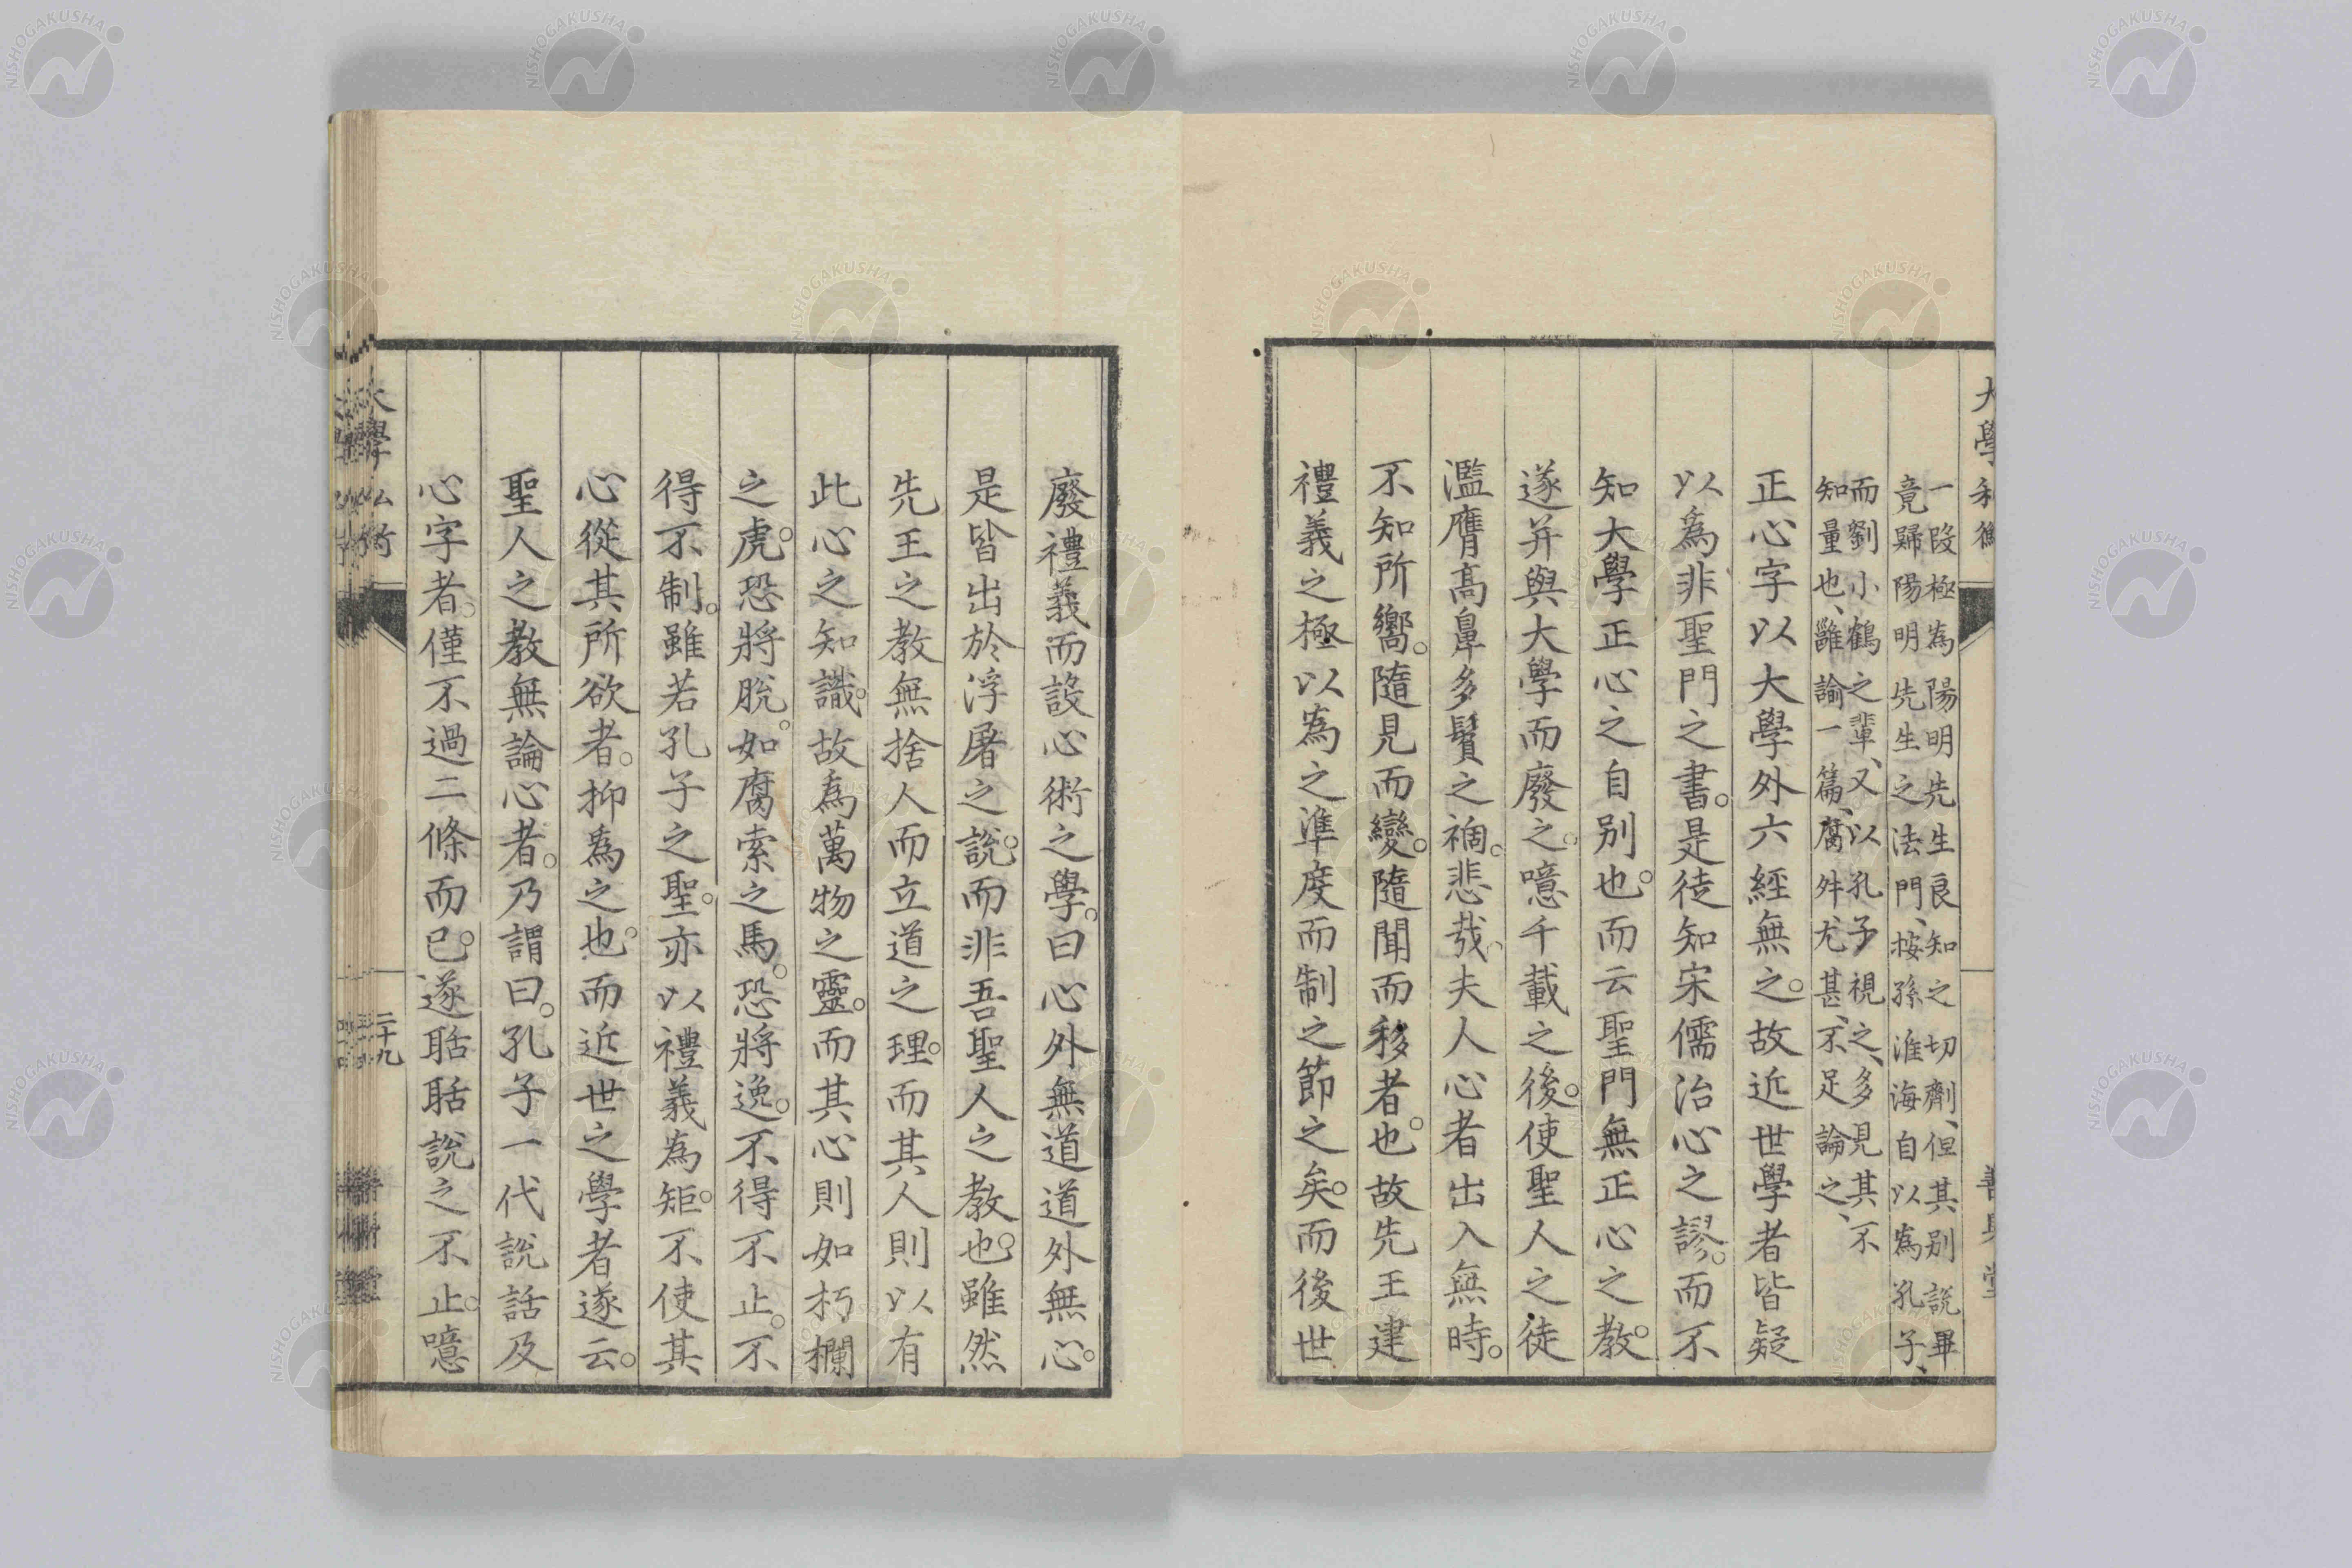 一段極為陽明先生良知之切劑、但其別說畢
竟歸陽明先生之法門、按孫淮海自以為孔子、
而劉小鶴之輩、又以孔子視之、多見其不
知量也、雖論一篇、腐舛尤甚、不足論之、
正心字以大學外六經無之。故近世學者皆疑
以為非聖門之書。是徒知宋儒治心之謬。而不
知大學正心之自别也。而云聖門無正心之教。
遂并與大學而廢之。噫千載之後。使聖人之徒
濫膺高鼻多鬚之禍。悲哉。夫人心者出入無時。
不知所嚮。隨見而變。隨聞而移者也。故先王建
禮義之極以為之準度而制之節之矣。而後世
廢禮義而設心術之學。曰心外無道道外無心。
是皆出於浮屠之說。而非吾聖人之教也。雖然
先王之教無捨人而立道之理。而其人則以有
此心之知識。故為萬物之靈。而其心則如朽欄
之虎。恐將脫。如腐索之馬。恐將逸。不得不止。不
得不制。雖若孔子之聖。亦以禮義為矩。不使其
心從其所欲者。抑為之也。而近世之學者遂云。
聖人之教無論心者。乃謂曰。孔子一代說話及
心字者。僅不過二條而已。遂聒聒說之不止。噫
大學
二十九